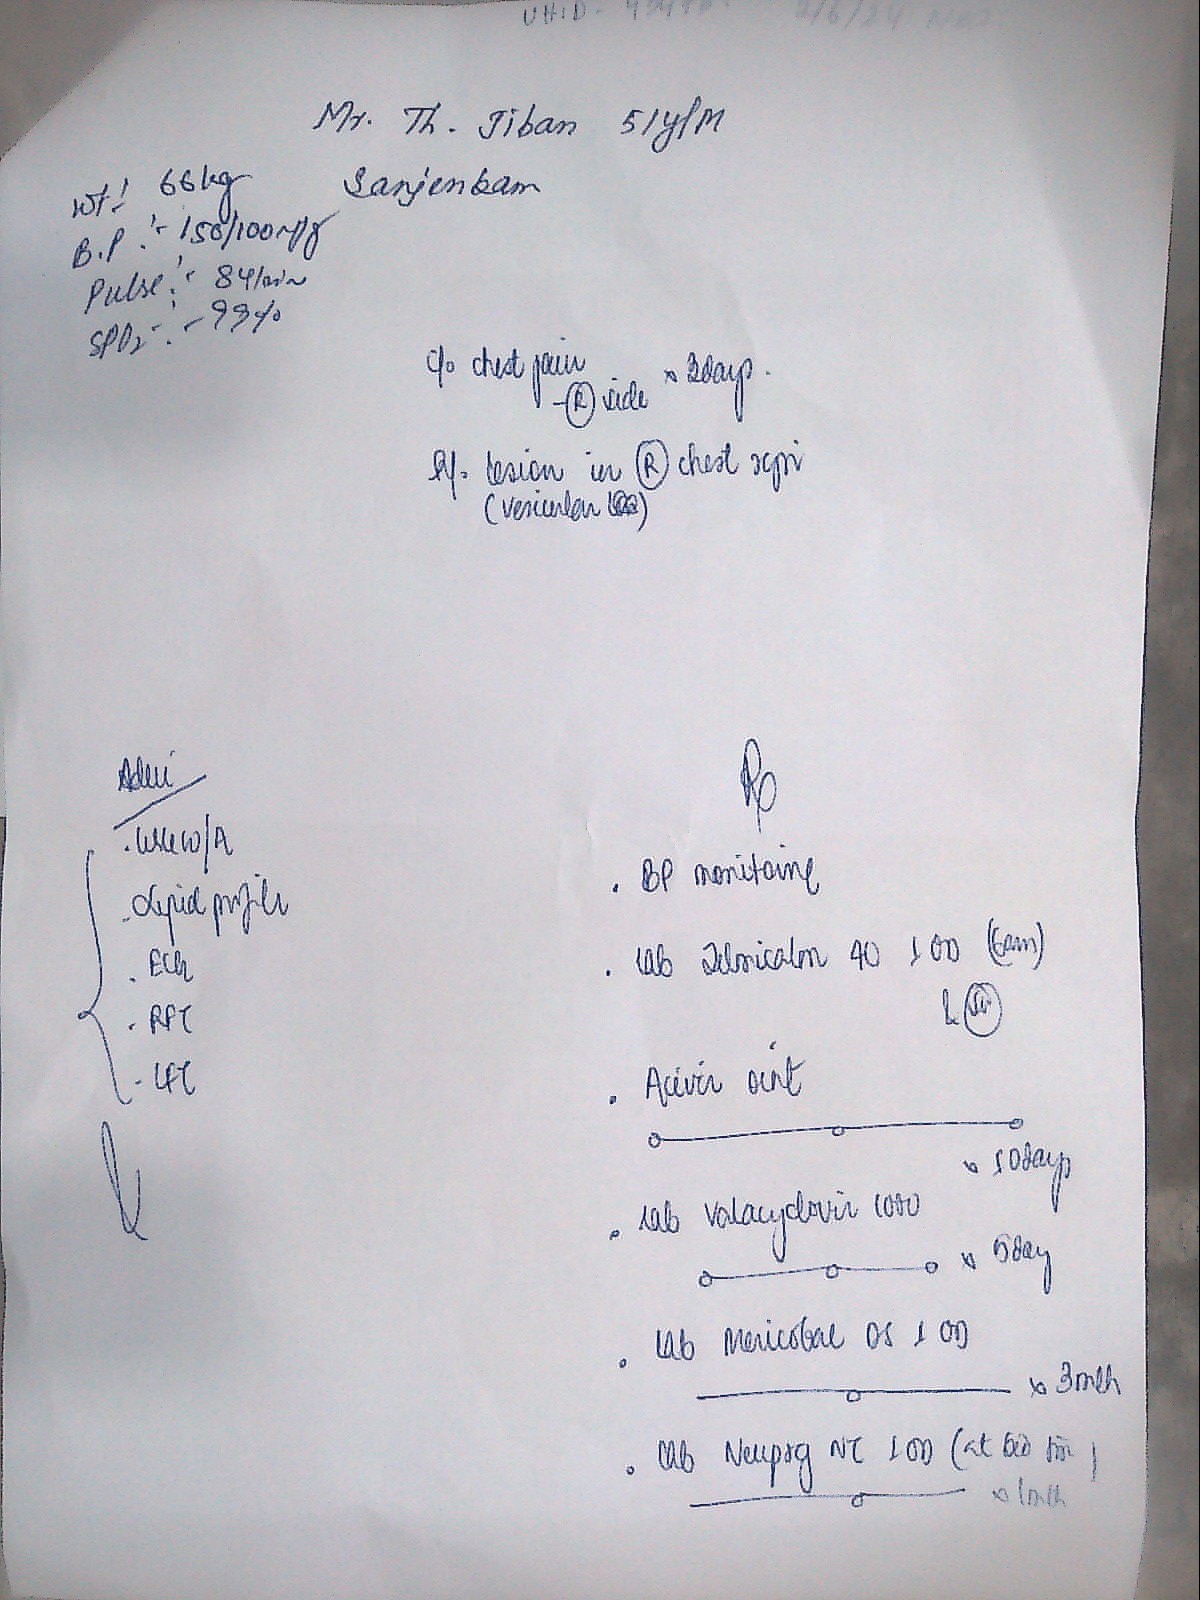 UHID -
Mr. Th. Jiban 51y/M
Sanjenbam
Wt:- 66kg
B.P:- 150/100
Pulse:- 84/min
SPO2:- 99%
c/o chest pain
- (R) side x 3days.
lesion in (R) chest
(vesicular
. Lipid profile
. ECG
. RFT
. LFT
Rx
. BP monitoring
. tab Telmisartan 40 1 OD (6am)
. Acivir oint
x 10days
. tab Valacyclovir 1000
x 5day
. tab Mericobal OS 1 OD
x 3mth
. tab NT 1 OD (at bed
x 1mth